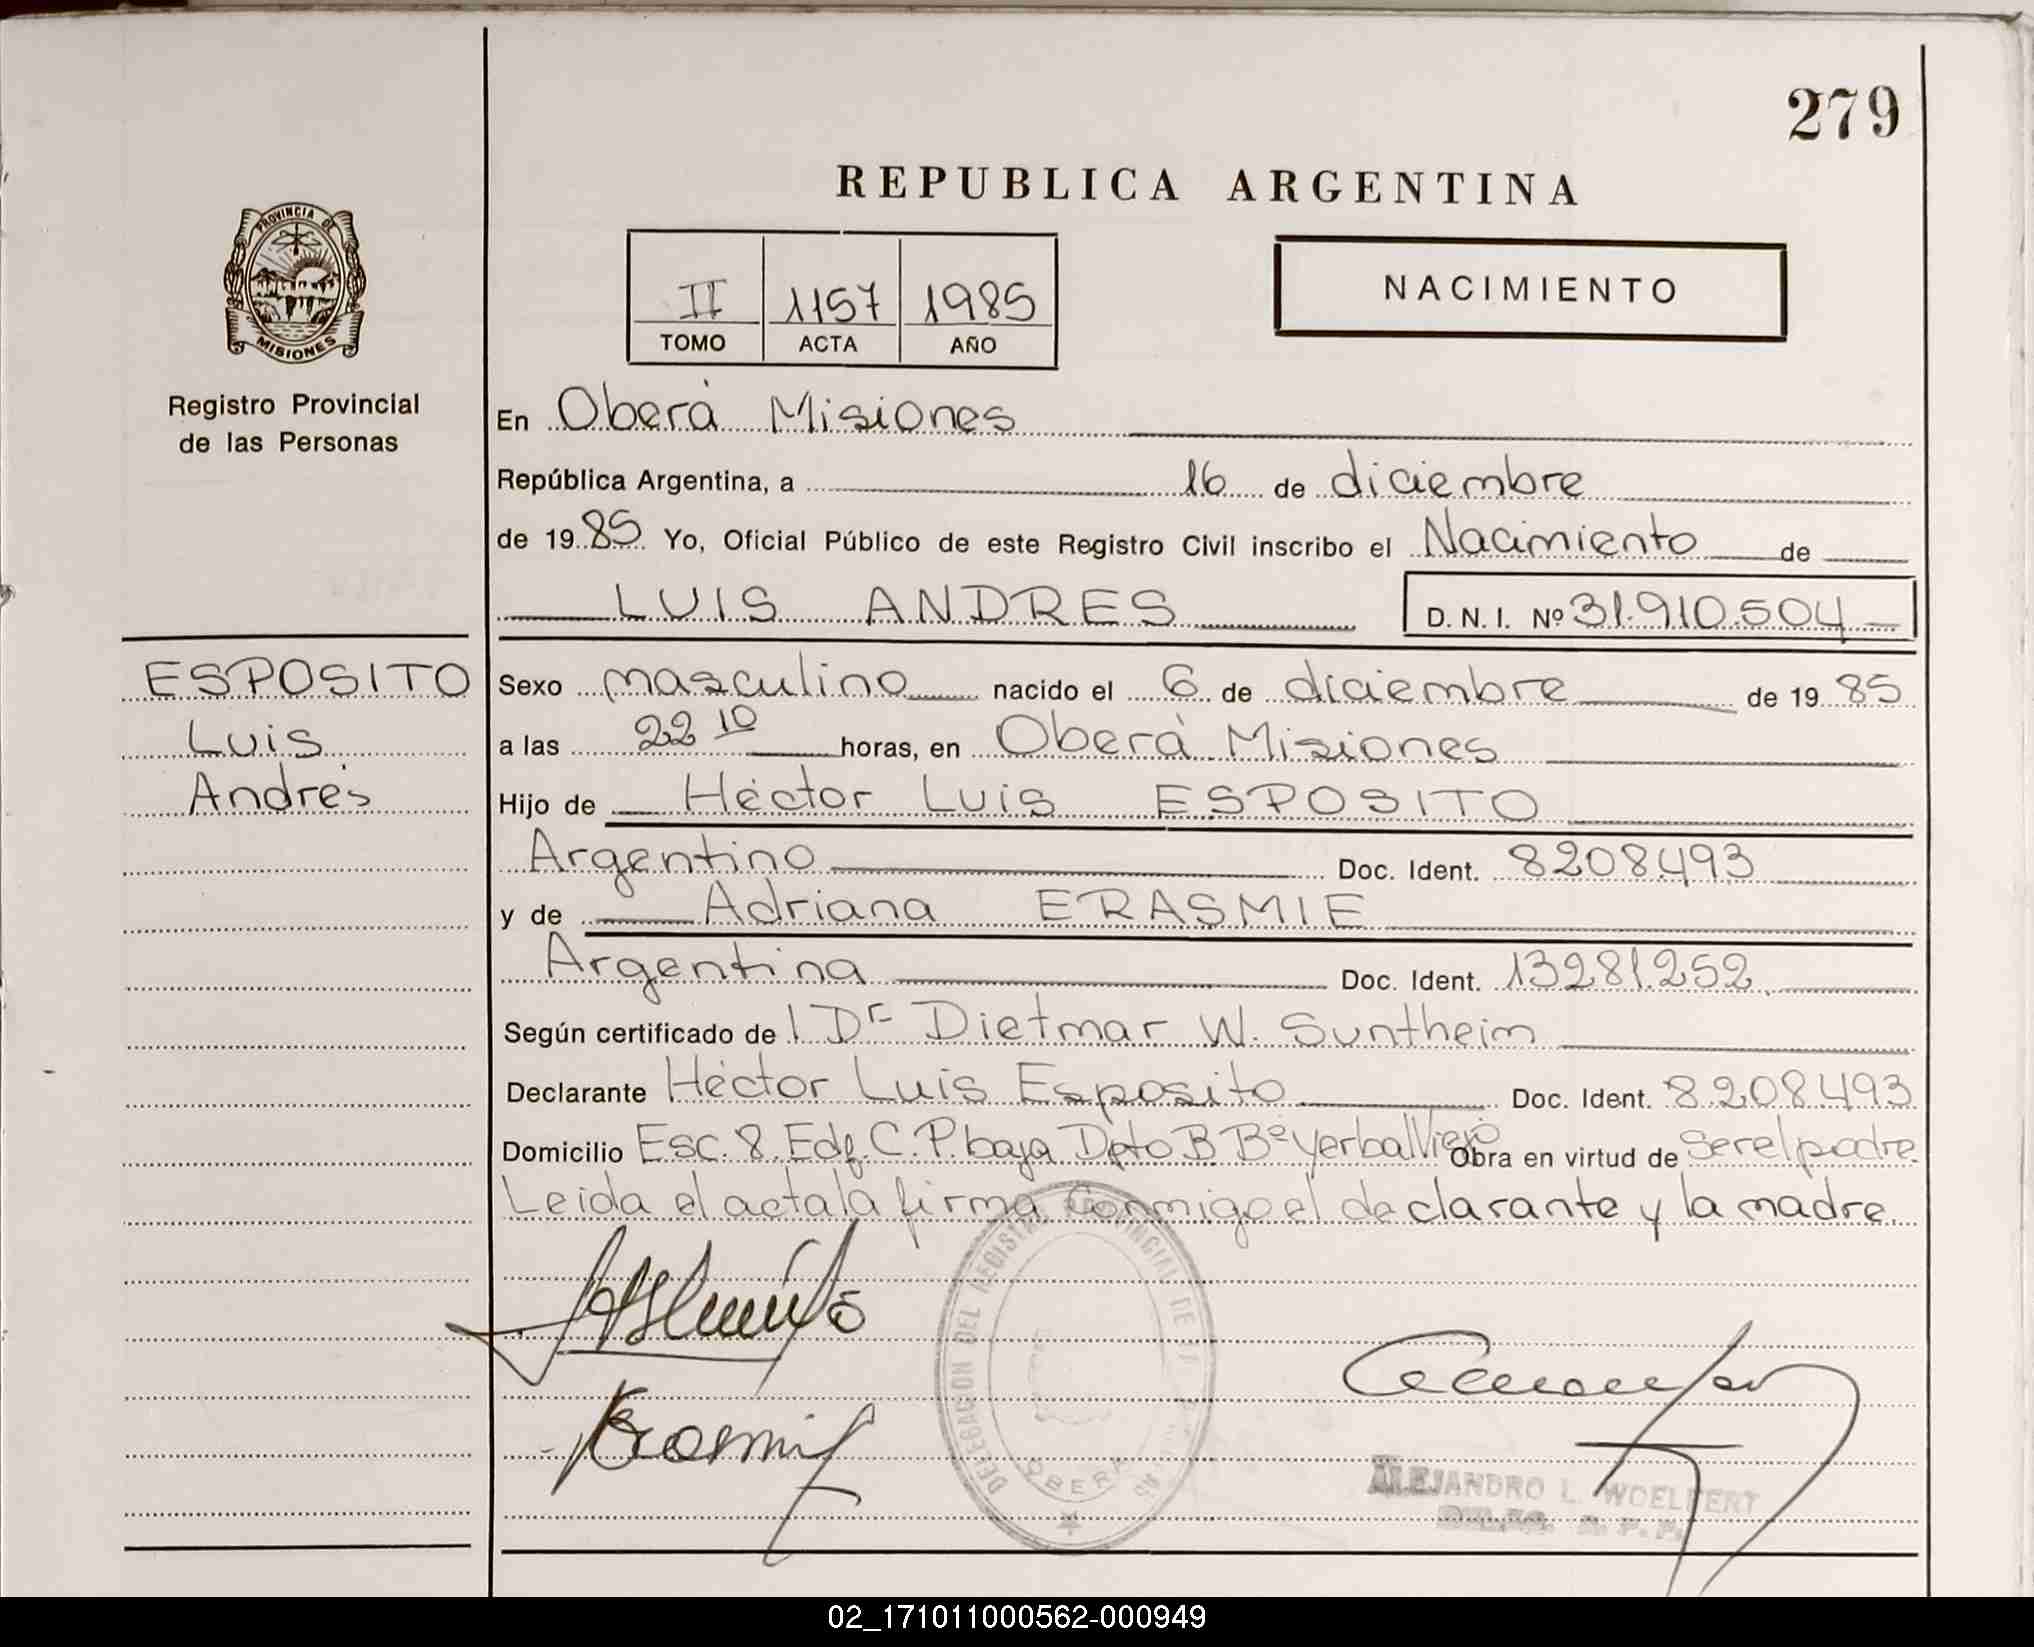 279
REPUBLICA ARGENTINA
PROVINCIA DE
MISIONES
Registro Provincial
de las Personas
II 1157 1985
TOMO ACTA AÑO
NACIMIENTO
En Oberá Misiones
República Argentina, a 16 de diciembre
de 1985 Yo, Oficial Público de este Registro Civil inscribo el Nacimiento de
LUIS ANDRES D. N. I. Nº 31.910.504
ESPOSITO
Luis
Andrés
Sexo masculino nacido el 6 de diciembre de 1985
a las 22 10 horas, en Oberá Misiones
Hijo de Héctor Luis ESPOSITO
Argentino Doc. Ident. 8208493
y de Adriana ERASMIE
Argentina Doc. Ident. 13281.252
Según certificado de l Dr Dietmar W. Suntheim
Declarante Héctor Luis Esposito Doc. Ident. 8208493
Domicilio Esc. 8. Edf. C. P. baja Dpto B Bº Yerbal Viejo Obra en virtud de ser el padre
Leida el acta la firma conmigo el declarante y la madre
DELEGACION DEL REGISTRO PROVINCIAL DE
OBERA
ALEJANDRO L. WOELFERT
02_171011000562-000949